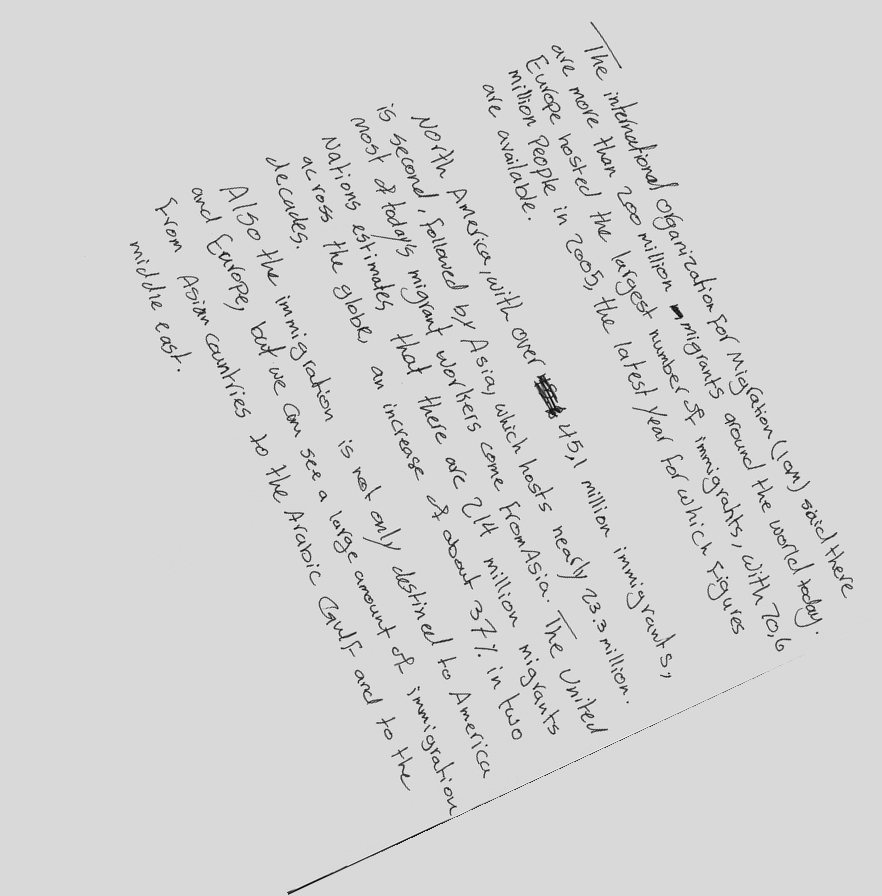 The international organization For Migration (IOM) said there
are more than 200 million migrants around the world today.
Europe hosted the largest number of immigrants, with 70,6
million People in 2005, the latest year for which Figures
are available.
North America, with over 45,1 million immigrants,
is second, followed by Asia, which hosts nearly 23.3 million.
most of today's migrant workers come From Asia. The United
Nations estimates that there are 214 million migrants
across the globe, an increase of about 37% in two
decades.
Also the immigration is not only destined to America
and Europe, but we can see a large amount of immigration
From Asian countries to the Arabic Gulf and to the
middle east.